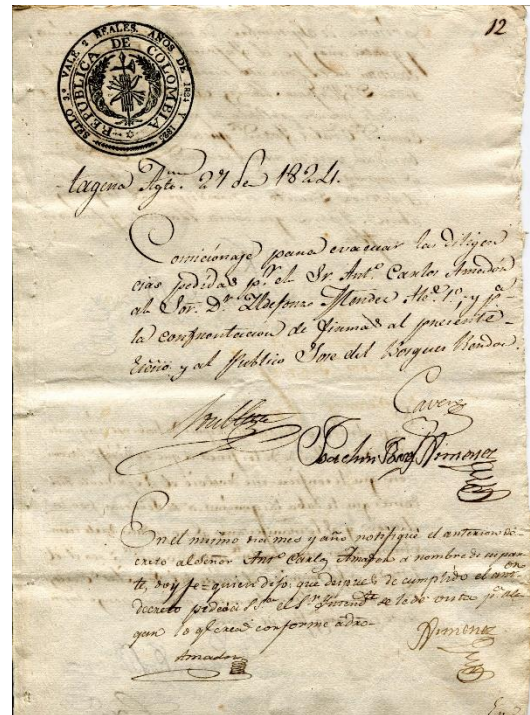 12
SELLO 2.º VALE 2 REALES. AÑOS DE 1824 Y 1825
REPUBLICA DE COLOMBIA
Agto. 27 de 1824.
Comicionase para evacuar las diligen
cias pedidas pr. el Sr. Anto. Carlos Amador
al Sor. Dr. Ildefonso Mendez y pa.
la confrontacion de firmas al presente
y al Publico Jose del Rendon
Joachin Jose Ximenez
En el mismo dia mes y año notifiqué el anterior de-
creto al señor Anto. Carlos Amador a nombre de su par-
te, doy fe = quien dijo: que despues de cumplido el antor.
decreto el Sr. Intendte. se le dé vista pa. ale
gar lo qe. crea conforme a dro.
Amador
Ximenez